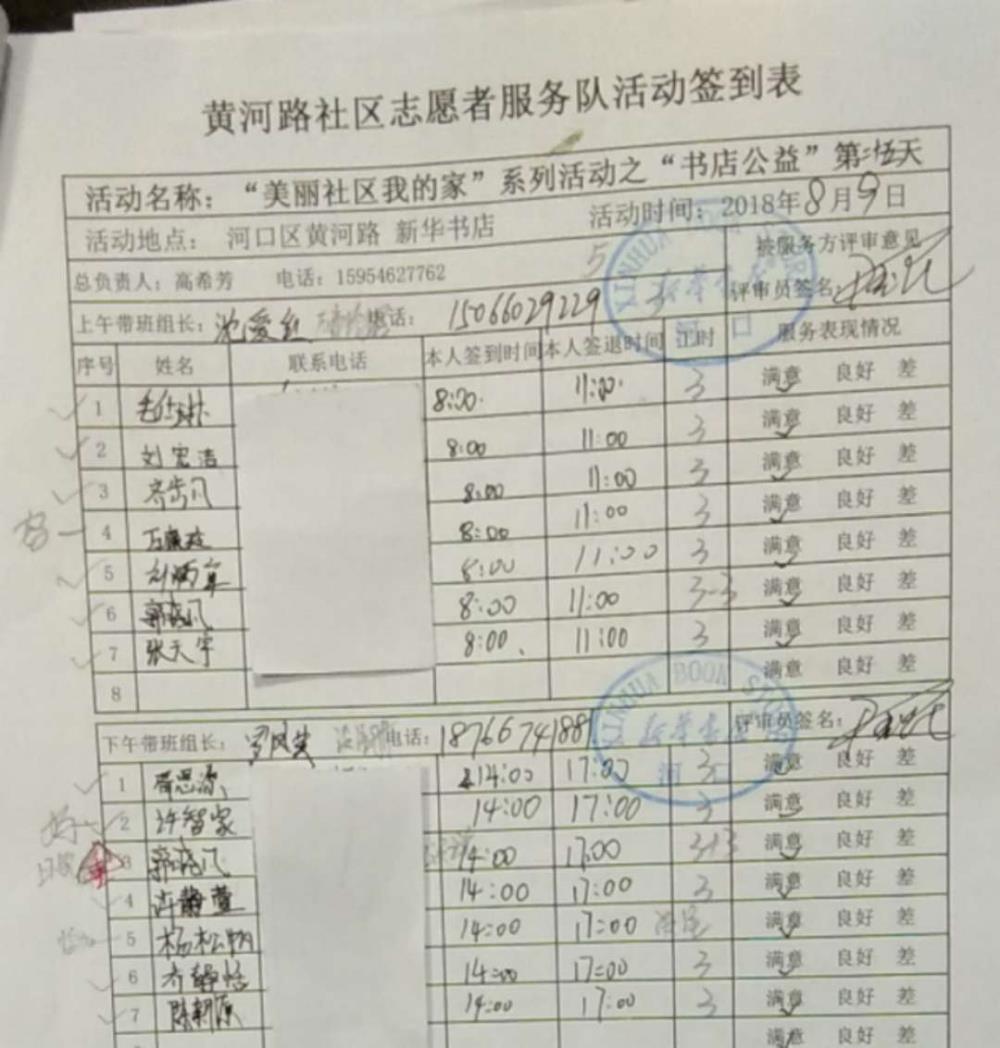 黄河路社区志愿者服务队活动签到表
活动名称：“美丽社区我的家”系列活动之“书店公益”第伍天
活动地点： 河口区黄河路 新华书店 活动时间：2018年8月9日
总负责人：高希芳 电话：15954627762 5 被服务方评审意见
上午带班组长： 电话： 15066029229 3 评审员签名：
序号 姓名 联系电话 本人签到时间 本人签退时间 工时 服务表现情况
1 8:00 11:00 3 满意 良好 差
2 刘宏洁 8:00 11:00 3 满意 良好 差
3 齐步凡 8:00 11:00 3 满意 良好 差
4 8:00 11:00 3 满意 良好 差
5 8:00 11:00 3 满意 良好 差
6 8:00 11:00 3-3 满意 良好 差
7 张天宇 8:00 11:00 3 满意 良好 差
8 满意 良好 差
XINHUA BOOK STORE
新华书店
河口
下午带班组长： 电话：18766741881 评审员签名：
1 14:00 17:00 3 满意 良好 差
2 许智家 14:00 17:00 3 满意 良好 差
3 14:00 17:00 3+3 满意 良好 差
4 许静萱 14:00 17:00 3 满意 良好 差
5 杨松炳 14:00 17:00 满意 良好 差
6 齐静恬 14:00 17:00 3 满意 良好 差
7 陈朝源 14:00 17:00 3 满意 良好 差
满意 良好 差